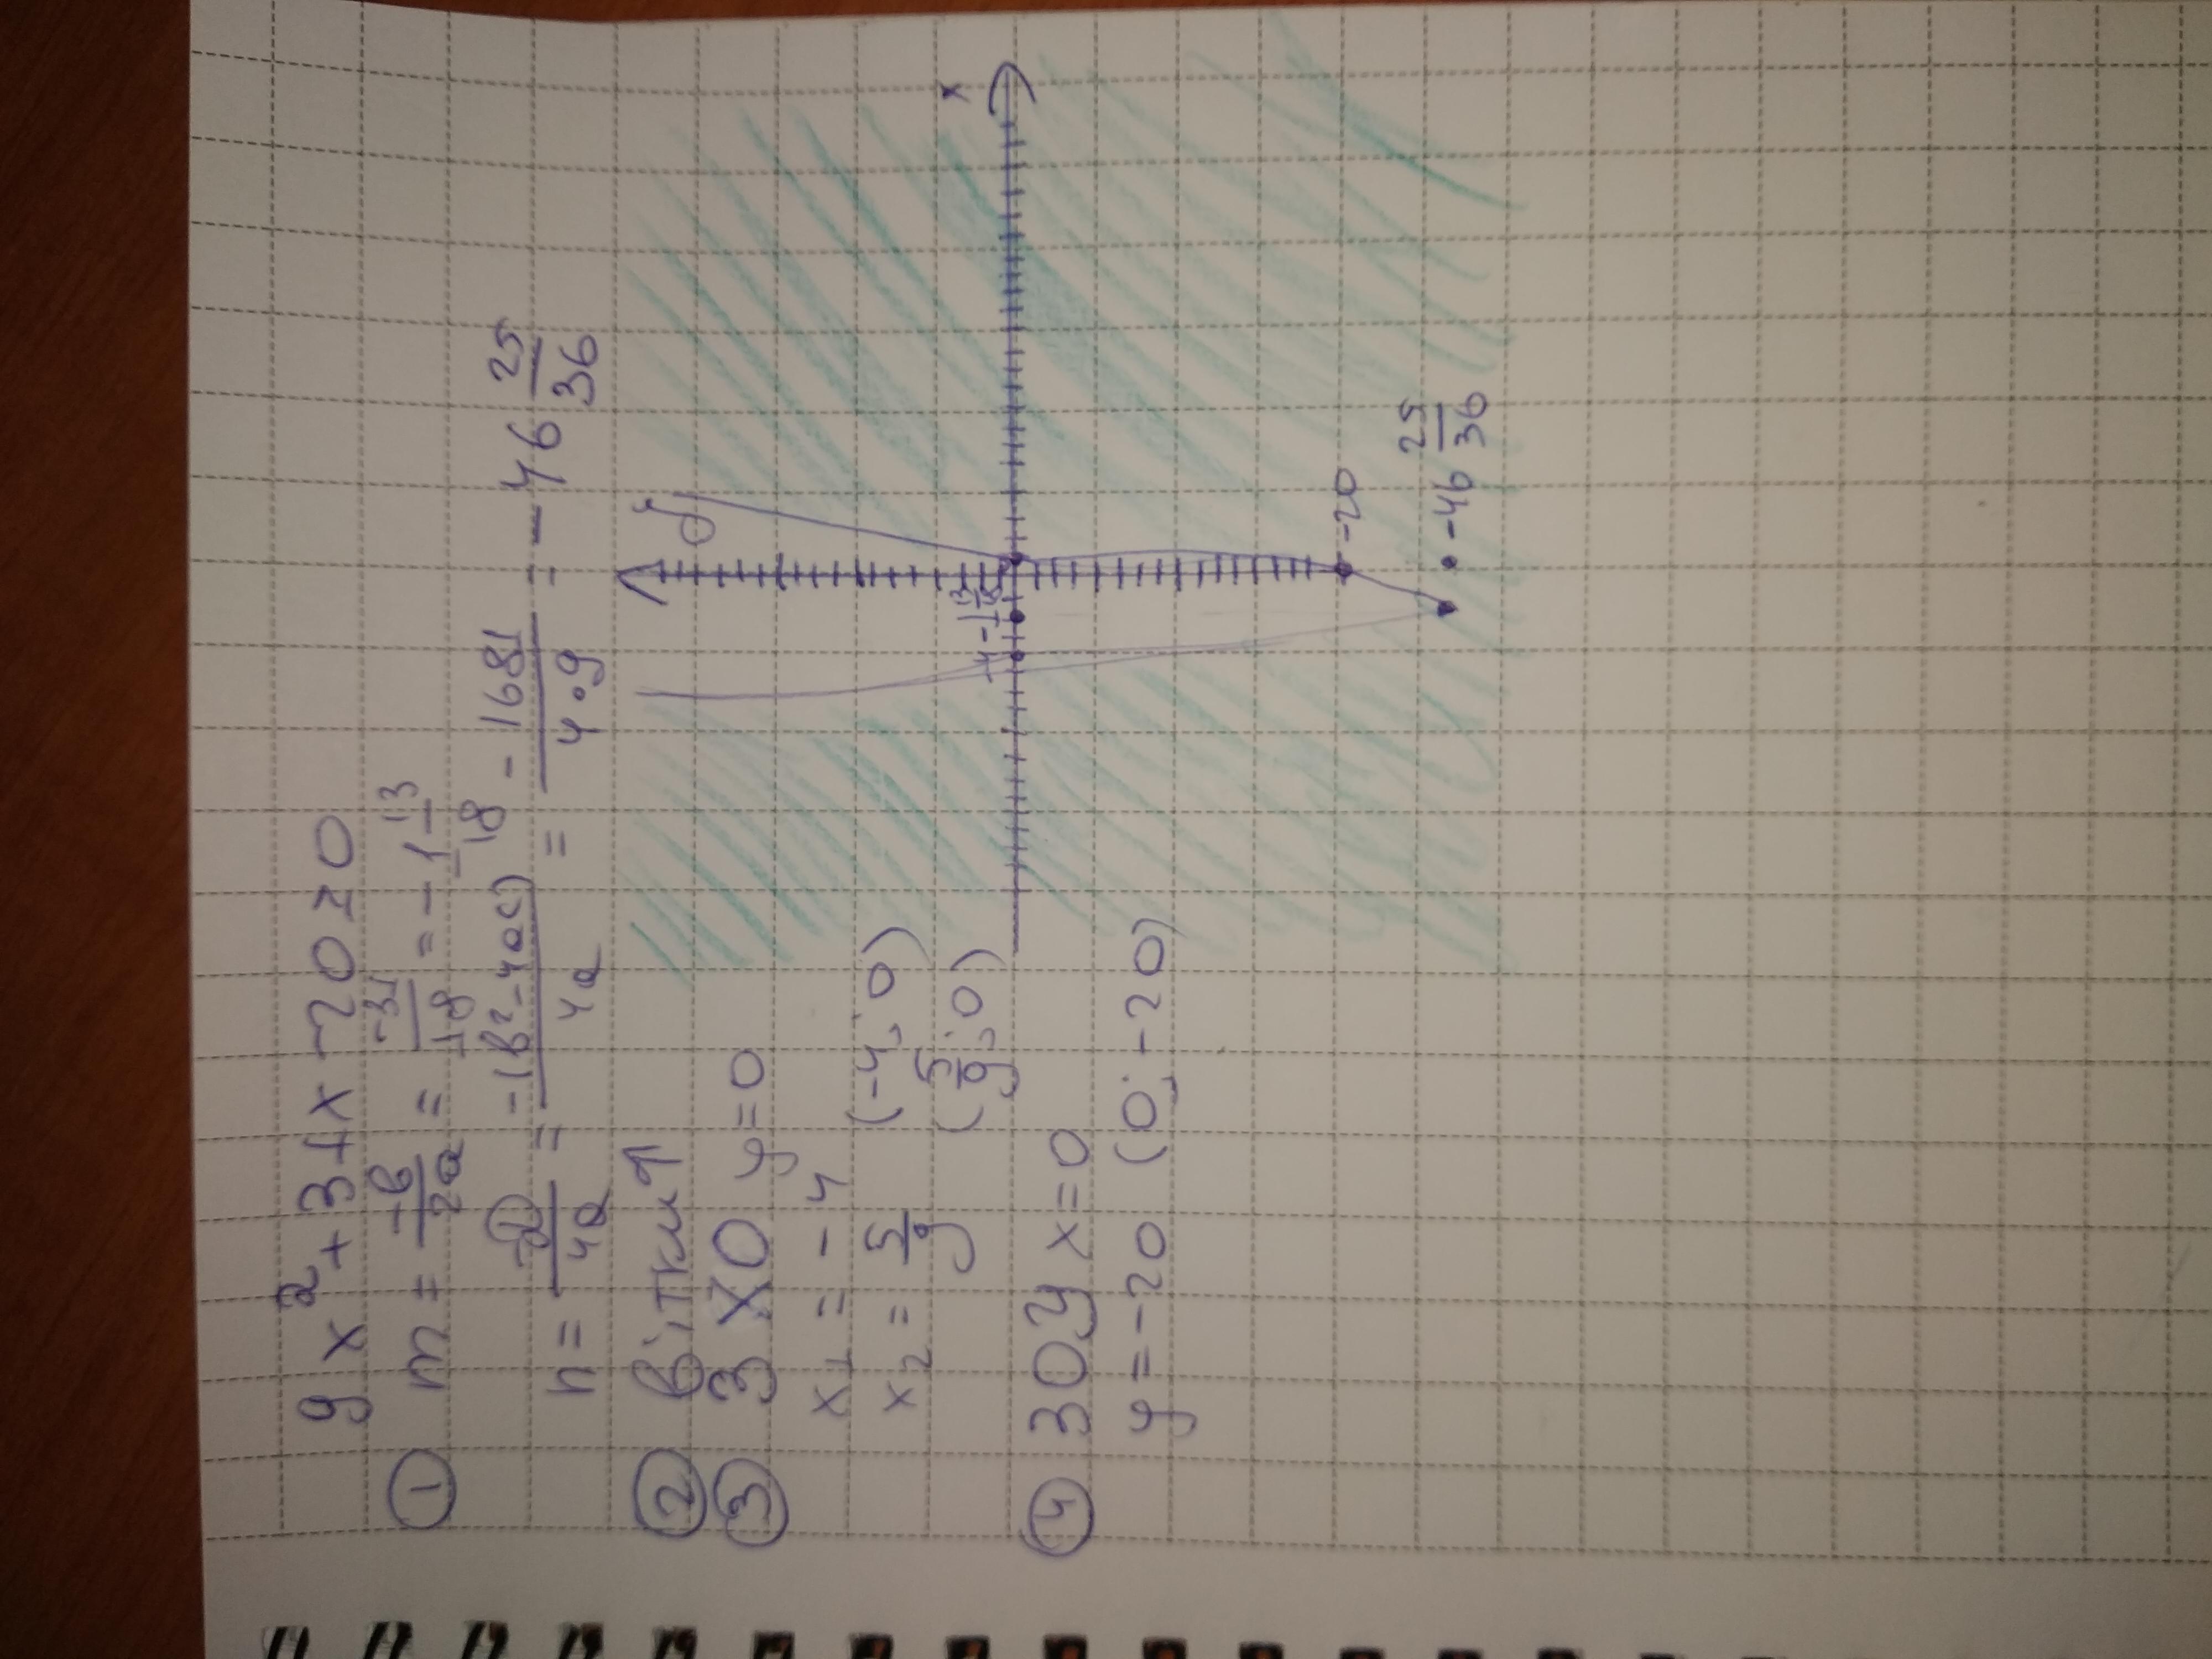 9x² + 31x - 20 ≥ 0
① m = -b/2a = -31/18 = -1 13/18
n = -D/4a = -(b²-4ac)/4a = -1681/4·9 = -46 25/36
② Вітки ↑
③ З XO y=0
x₁ = -4 (-4; 0)
x₂ = 5/9 (5/9; 0)
④ З OY x=0
y = -20 (0; -20)
y
x
-4 -1 13/18
-20
-46 25/36